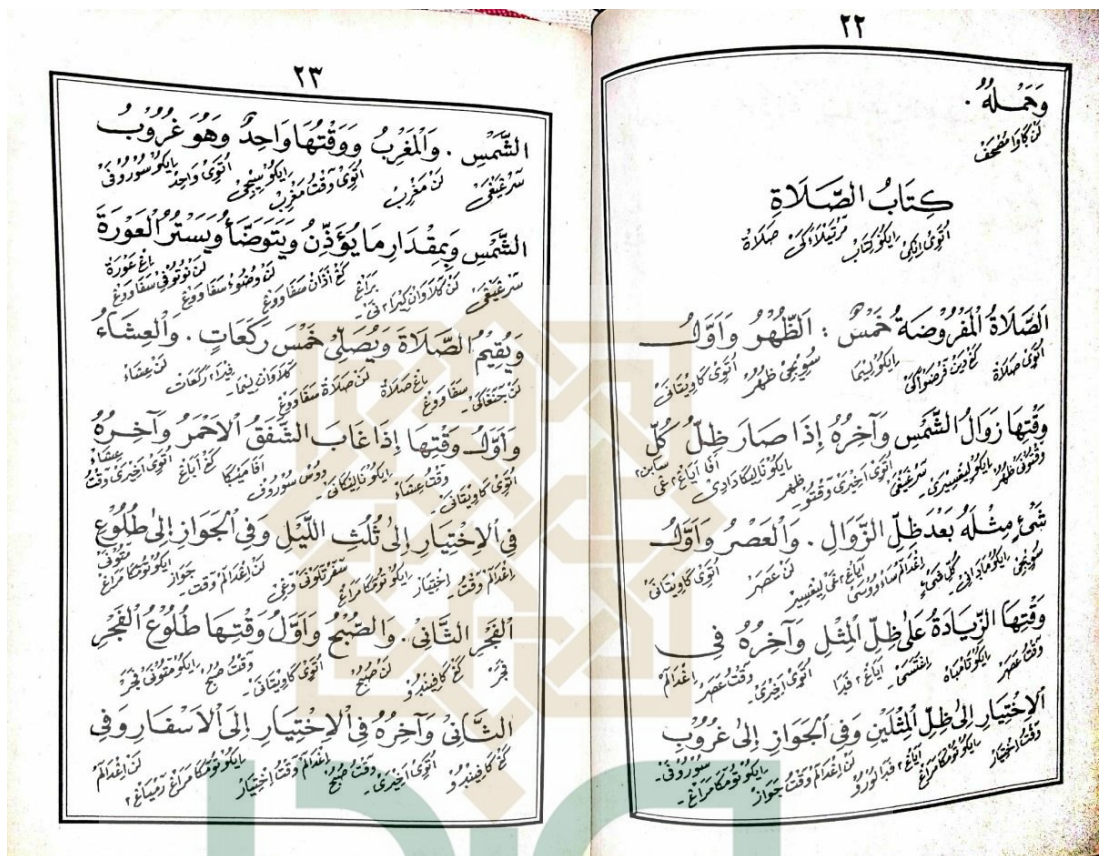 ٢٢
وَحَمْلُهُ .
لن ڮاوا مصحف
كِتَابُ الصَّلَاةِ
اتوي ايكي ايكو كتاب مرتيلاءكى صلاة
الصَّلَاةُ الْمَفْرُوضَةُ خَمْسٌ : الظُّهْرُ وَاَوَّلُ
اتوي صلاة كڠ دين فرضوءاكى ايكو ليما سويجي ظهر اتوي كاويتاني
وَقْتِهَا زَوَالُ الشَّمْسِ وَآخِرُهُ إِذَا صَارَ ظِلُّ كُلِّ
وقتوني ظهر ايكو ليڠسيري سرڠيڠي اتوي اخيري وقتو ظهر ايكو ناليكا دادي افا اياڠ٢ ڠي سابن٢
شَيْءٍ مِثْلَهُ بَعْدَ ظِلِّ الزَّوَالِ . وَالْعَصْرُ وَاَوَّلُ
سويجي ايكو مادني اياڠ٢ ڠي ليڠسير لن عصر اتوي كاويتاني
وَقْتِهَا الزِّيَادَةُ عَلٰى ظِلِّ الْمِثْلِ وَآخِرُهُ فِي
وقت عصر ايكو تامباه اياڠ٢ فدا اتوي اخيري وقت عصر اڠدالم
الْاِخْتِيَارِ إِلٰى ظِلِّ الْمِثْلَيْنِ وَفِي الْجَوَازِ إِلٰى غُرُوْبِ
وقت اختيار ايكو تومكا مراڠ اياڠ٢ فدا لورو لن اڠدالم وقت جواز ايكو تومكا مراڠ سوروفي
٢٣
الشَّمْسِ . وَالْمَغْرِبُ وَوَقْتُهَا وَاحِدٌ وَهُوَ غُرُوْبُ
سرڠيڠي لن مغرب اتوي وقت مغرب ايكو سيجي اتوي واحد ايكو سوروفي
الشَّمْسِ وَبِمِقْدَارِ مَا يُؤَذِّنُ وَيَتَوَضَّأُ وَيَسْتُرُ الْعَوْرَةَ
سرڠيڠي لن كلاوان كيرا٢ ني براڠ كڠ أذان سفا ووڠ لن وضوء سفا ووڠ لن نوتوفي سفا ووڠ باڠ عورة
وَيُقِيْمُ الصَّلَاةَ وَيُصَلِّيْ خَمْسَ رَكَعَاتٍ . وَالْعِشَاءُ
لن سفا ووڠ باڠ صلاة لن صلاة سفا ووڠ كلاوان ليما ركعات لن عشاء
وَاَوَّلُ وَقْتِهَا إِذَا غَابَ الشَّفَقُ الْاَحْمَرُ وَآخِرُهُ
اتوي كاويتاني وقت عشاء ايكو ناليكاني ووس سوروف افا ميڮا كڠ اباڠ اتوي اخيري وقت عشاء
فِي الْاِخْتِيَارِ إِلٰى ثُلُثِ اللَّيْلِ وَفِي الْجَوَازِ إِلٰى طُلُوْعِ
اڠدالم وقت اختيار ايكو تومكا مراڠ سفرتلوني وڠي لن اڠدالم وقت جواز ايكو تومكا مراڠ متوني
الْفَجْرِ الثَّانِيْ . وَالصُّبْحُ وَاَوَّلُ وَقْتِهَا طُلُوْعُ الْفَجْرِ
فجر كڠ كافيندو لن صبح اتوي كاويتاني وقت صبح ايكو متوني فجر
الثَّانِيْ وَآخِرُهُ فِي الْاِخْتِيَارِ إِلَى الْاَسْفَارِ وَفِي
كڠ كافيندو اتوي اخيري وقت صبح اڠدالم وقت اختيار ايكو تومكا مراڠ لن اڠدالم